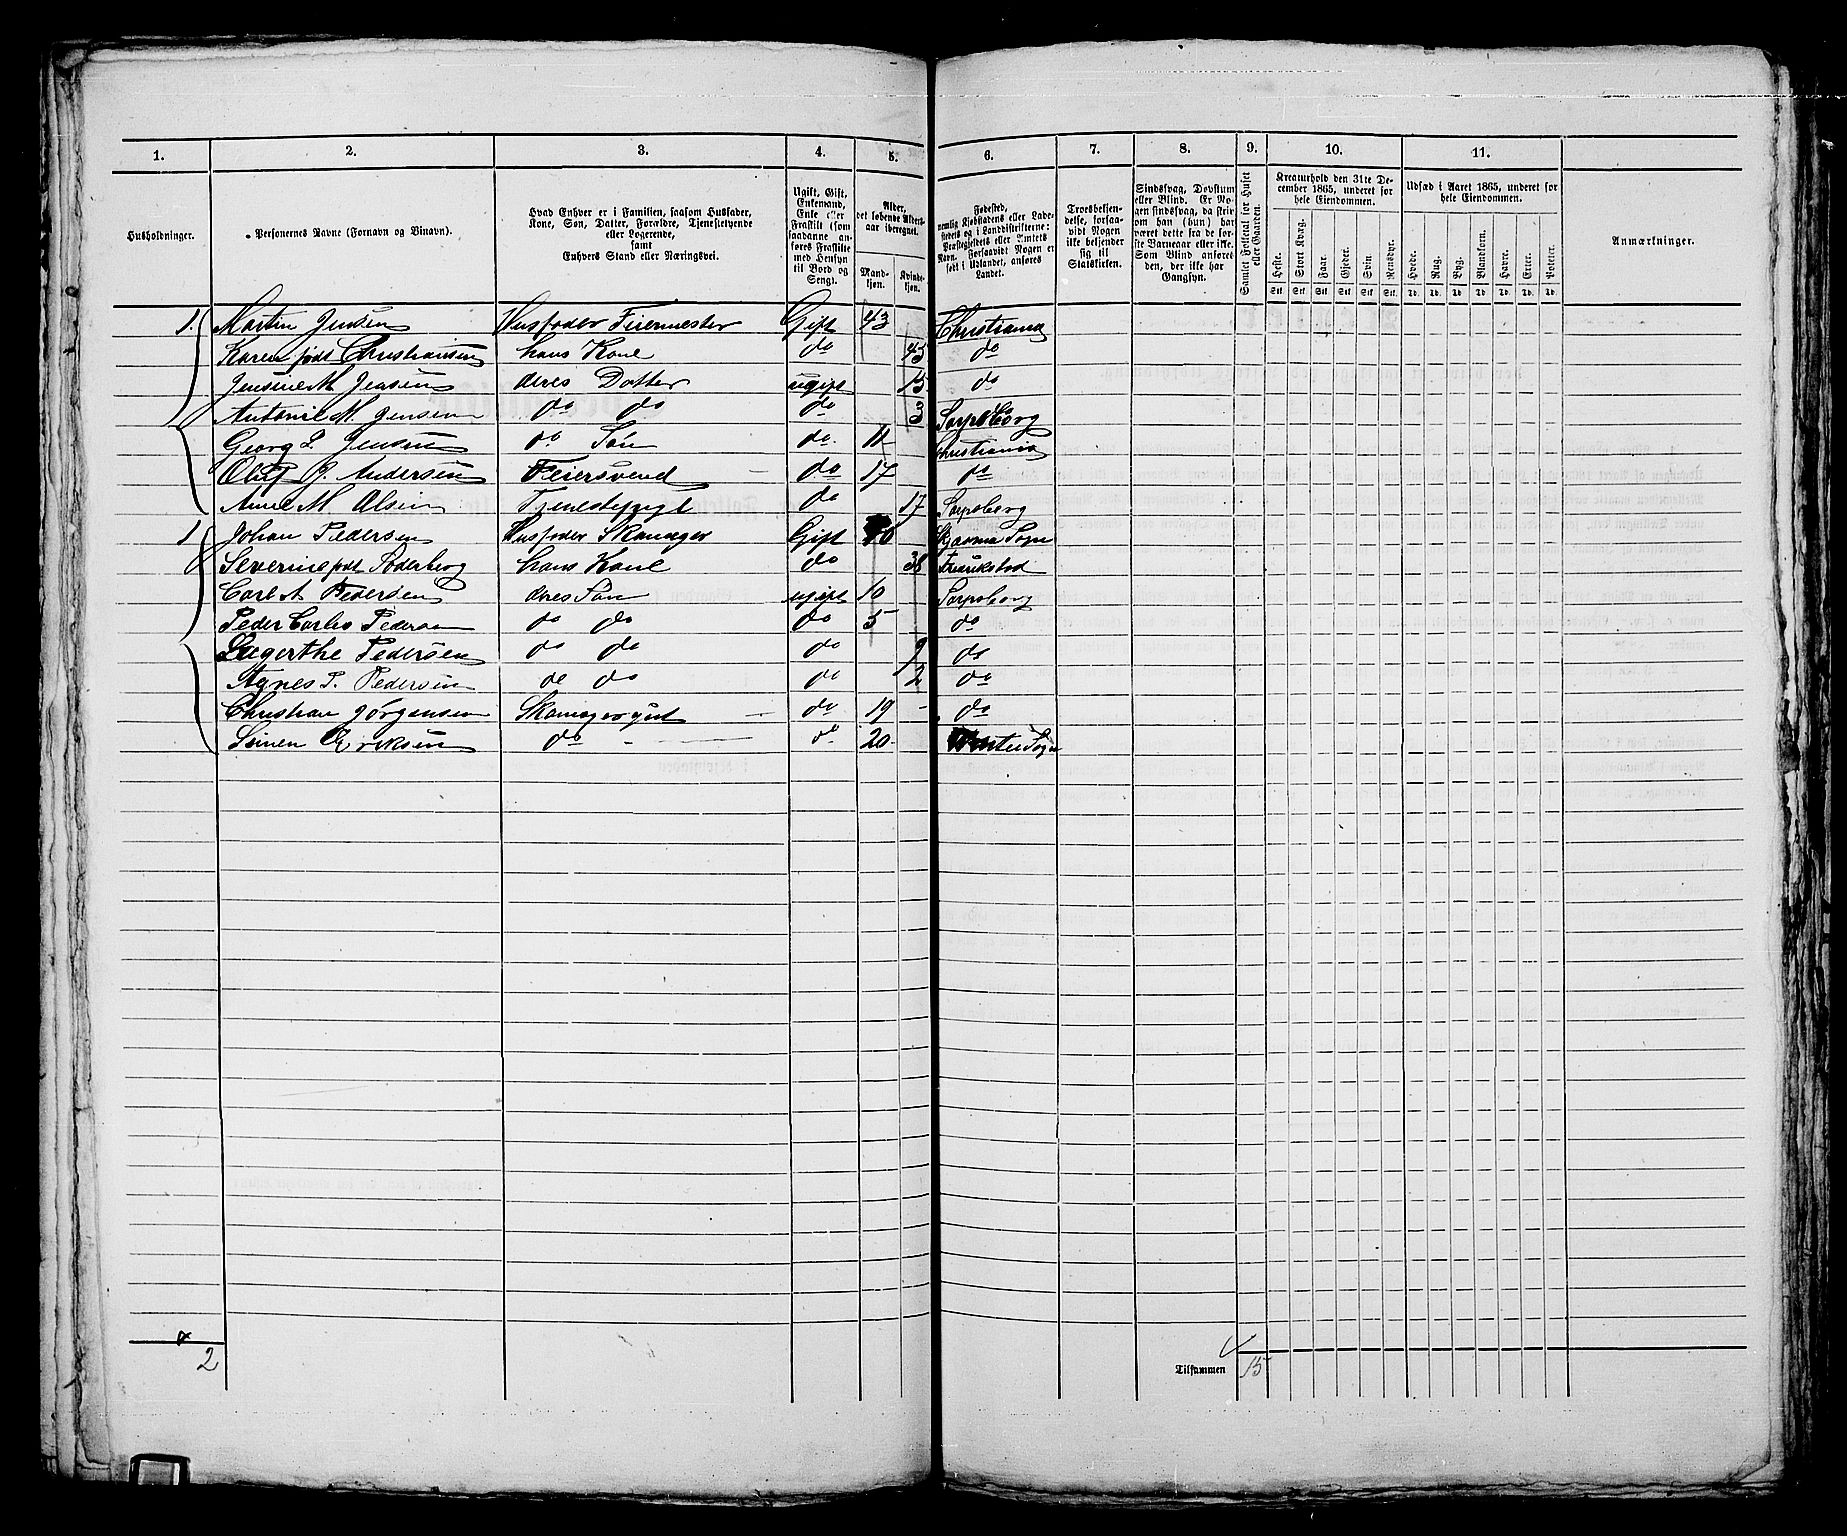 1. 2. 3. 4. 5. 6. 7. 8. 9. 10. 11.
Husholdninger.
Personernes Navne (Fornavn og Binavn).
Hvad Enhver er i Familien, saasom Husfader,
Kone, Søn, Datter, Forældre, Tjenestetyende
eller Logerende,
samt
Enhvers Stand eller Næringsvei.
Ugift, Gift,
Enkemand,
Enke eller
Fraskilt (som
saadanne an-
føres Fraskilte
med Hensyn
til Bord og
Seng).
Alder,
det løbende Alders-
aar iberegnet.
Mand-
kjøn.
Kvinde-
kjøn.
Fødested,
nemlig Kjøbstadens eller Lade-
stedets og i Landdistrikterne:
Præstegjeldets eller Amtets
Navn. Forsaavidt Nogen er
født i Udlandet, anføres
Landet.
Troesbekjen-
delse, forsaa-
vidt Nogen
ikke bekjender
sig til
Statskirken.
Sindssvag, Døvstum
eller Blind. Er No-
gen sindssvag, da skri-
ver om han (hun) har
været dette fra de før-
ste Barneaar eller ikke.
Som Blind anføres
den, der ikke har
Gangsyn.
Samlet Folketal for Huset
eller Gaarden.
Kreaturhold den 31te De-
cember 1865, underet for
hele Eiendommen.
Heste. Stort Kvæg. Faar. Gjeder. Svin. Rensdyr.
Stk. Stk. Stk. Stk. Stk. Stk.
Udsæd i Aaret 1865, underet for
hele Eiendommen.
Hvede. Rug. Byg. Blandkorn. Havre. Erter. Poteter.
Td. Td. Td. Td. Td. Td. Td.
Anmærkninger.
1. Martin Jensen Husfader Feiermester Gift 43 Christiania
Karen født Christiansen hans Kone do 45 do
Jensine M Jensen deres Datter ugift 15 do
Antonie M. Jensen do do do 3 Sarpsborg
Georg L Jensen do Søn do 11 Christiania
Oluf J. Andersen Feiersvend do 17 do
Anne M Olsen Tjenestepige do 17 Sarpsborg
1 Johan Pedersen Husfader Skomager Gift 40 Sogn
Severine født Søderberg hans Kone do 38 Fredrikstad
Carl A Pedersen deres Søn ugift 10 Sarpsborg
Peder Carlus Pedersen do do do 5 do
Pedersen do do do 9 do
Agnes P. Pedersen do do do 2 do
Christian Jørgensen Skomagergut do 19 do
Simen Eriksen do do 20 Sogn
2
Tilsammen 15